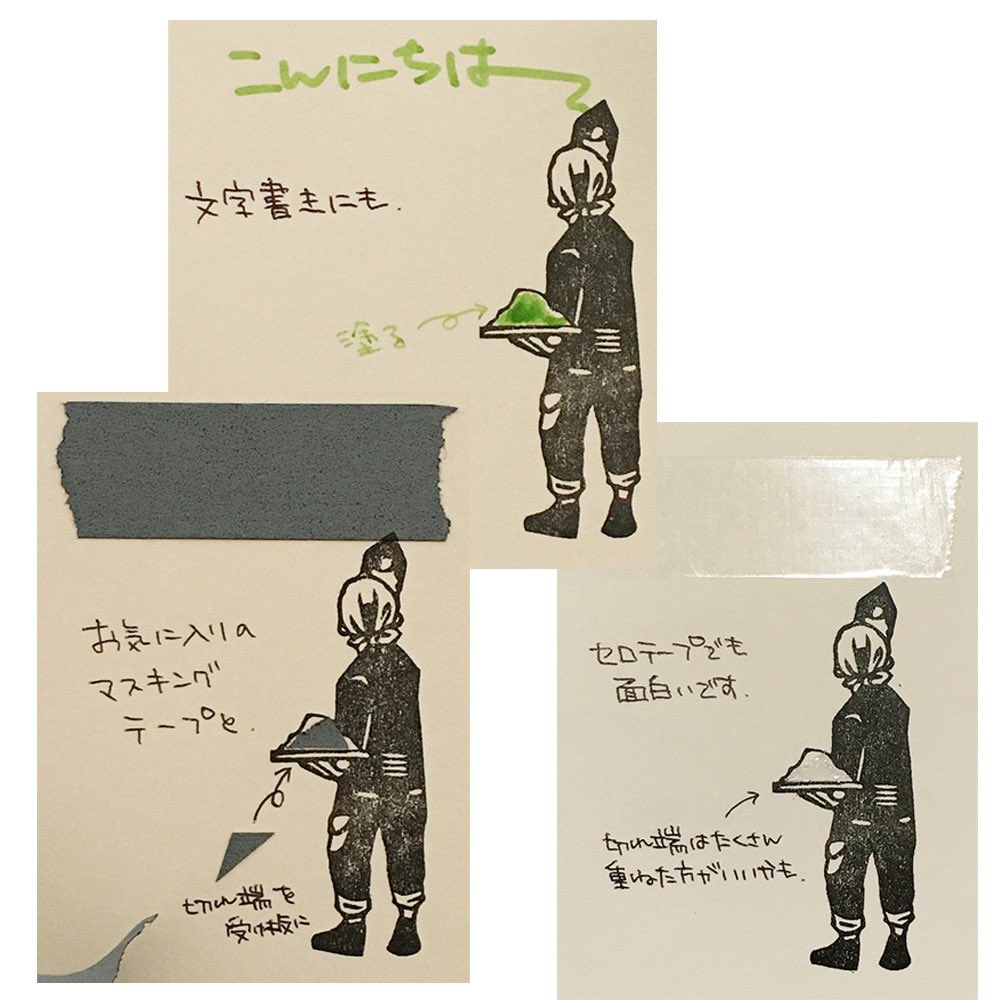 こんにちは
文字書きにも.
塗る
お気に入りの
マスキング
テープと.
切れ端を
受け板に
セロテープでも
面白いです.
切れ端はたくさん
重ねた方がいいかも.